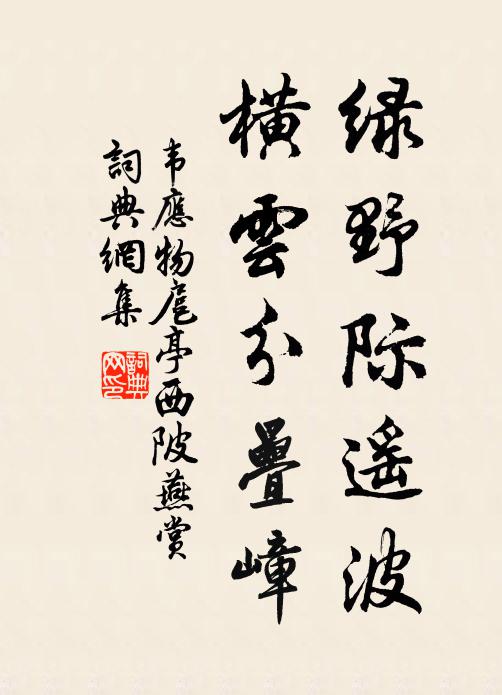 绿野际遥波
横雲分疊嶂
韦應物扈亭西陂燕赏
詞典網集
詞典网印